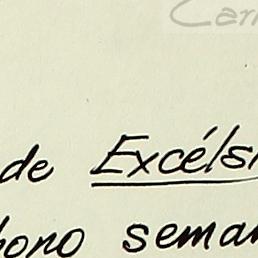 de Excélsi
bono seman